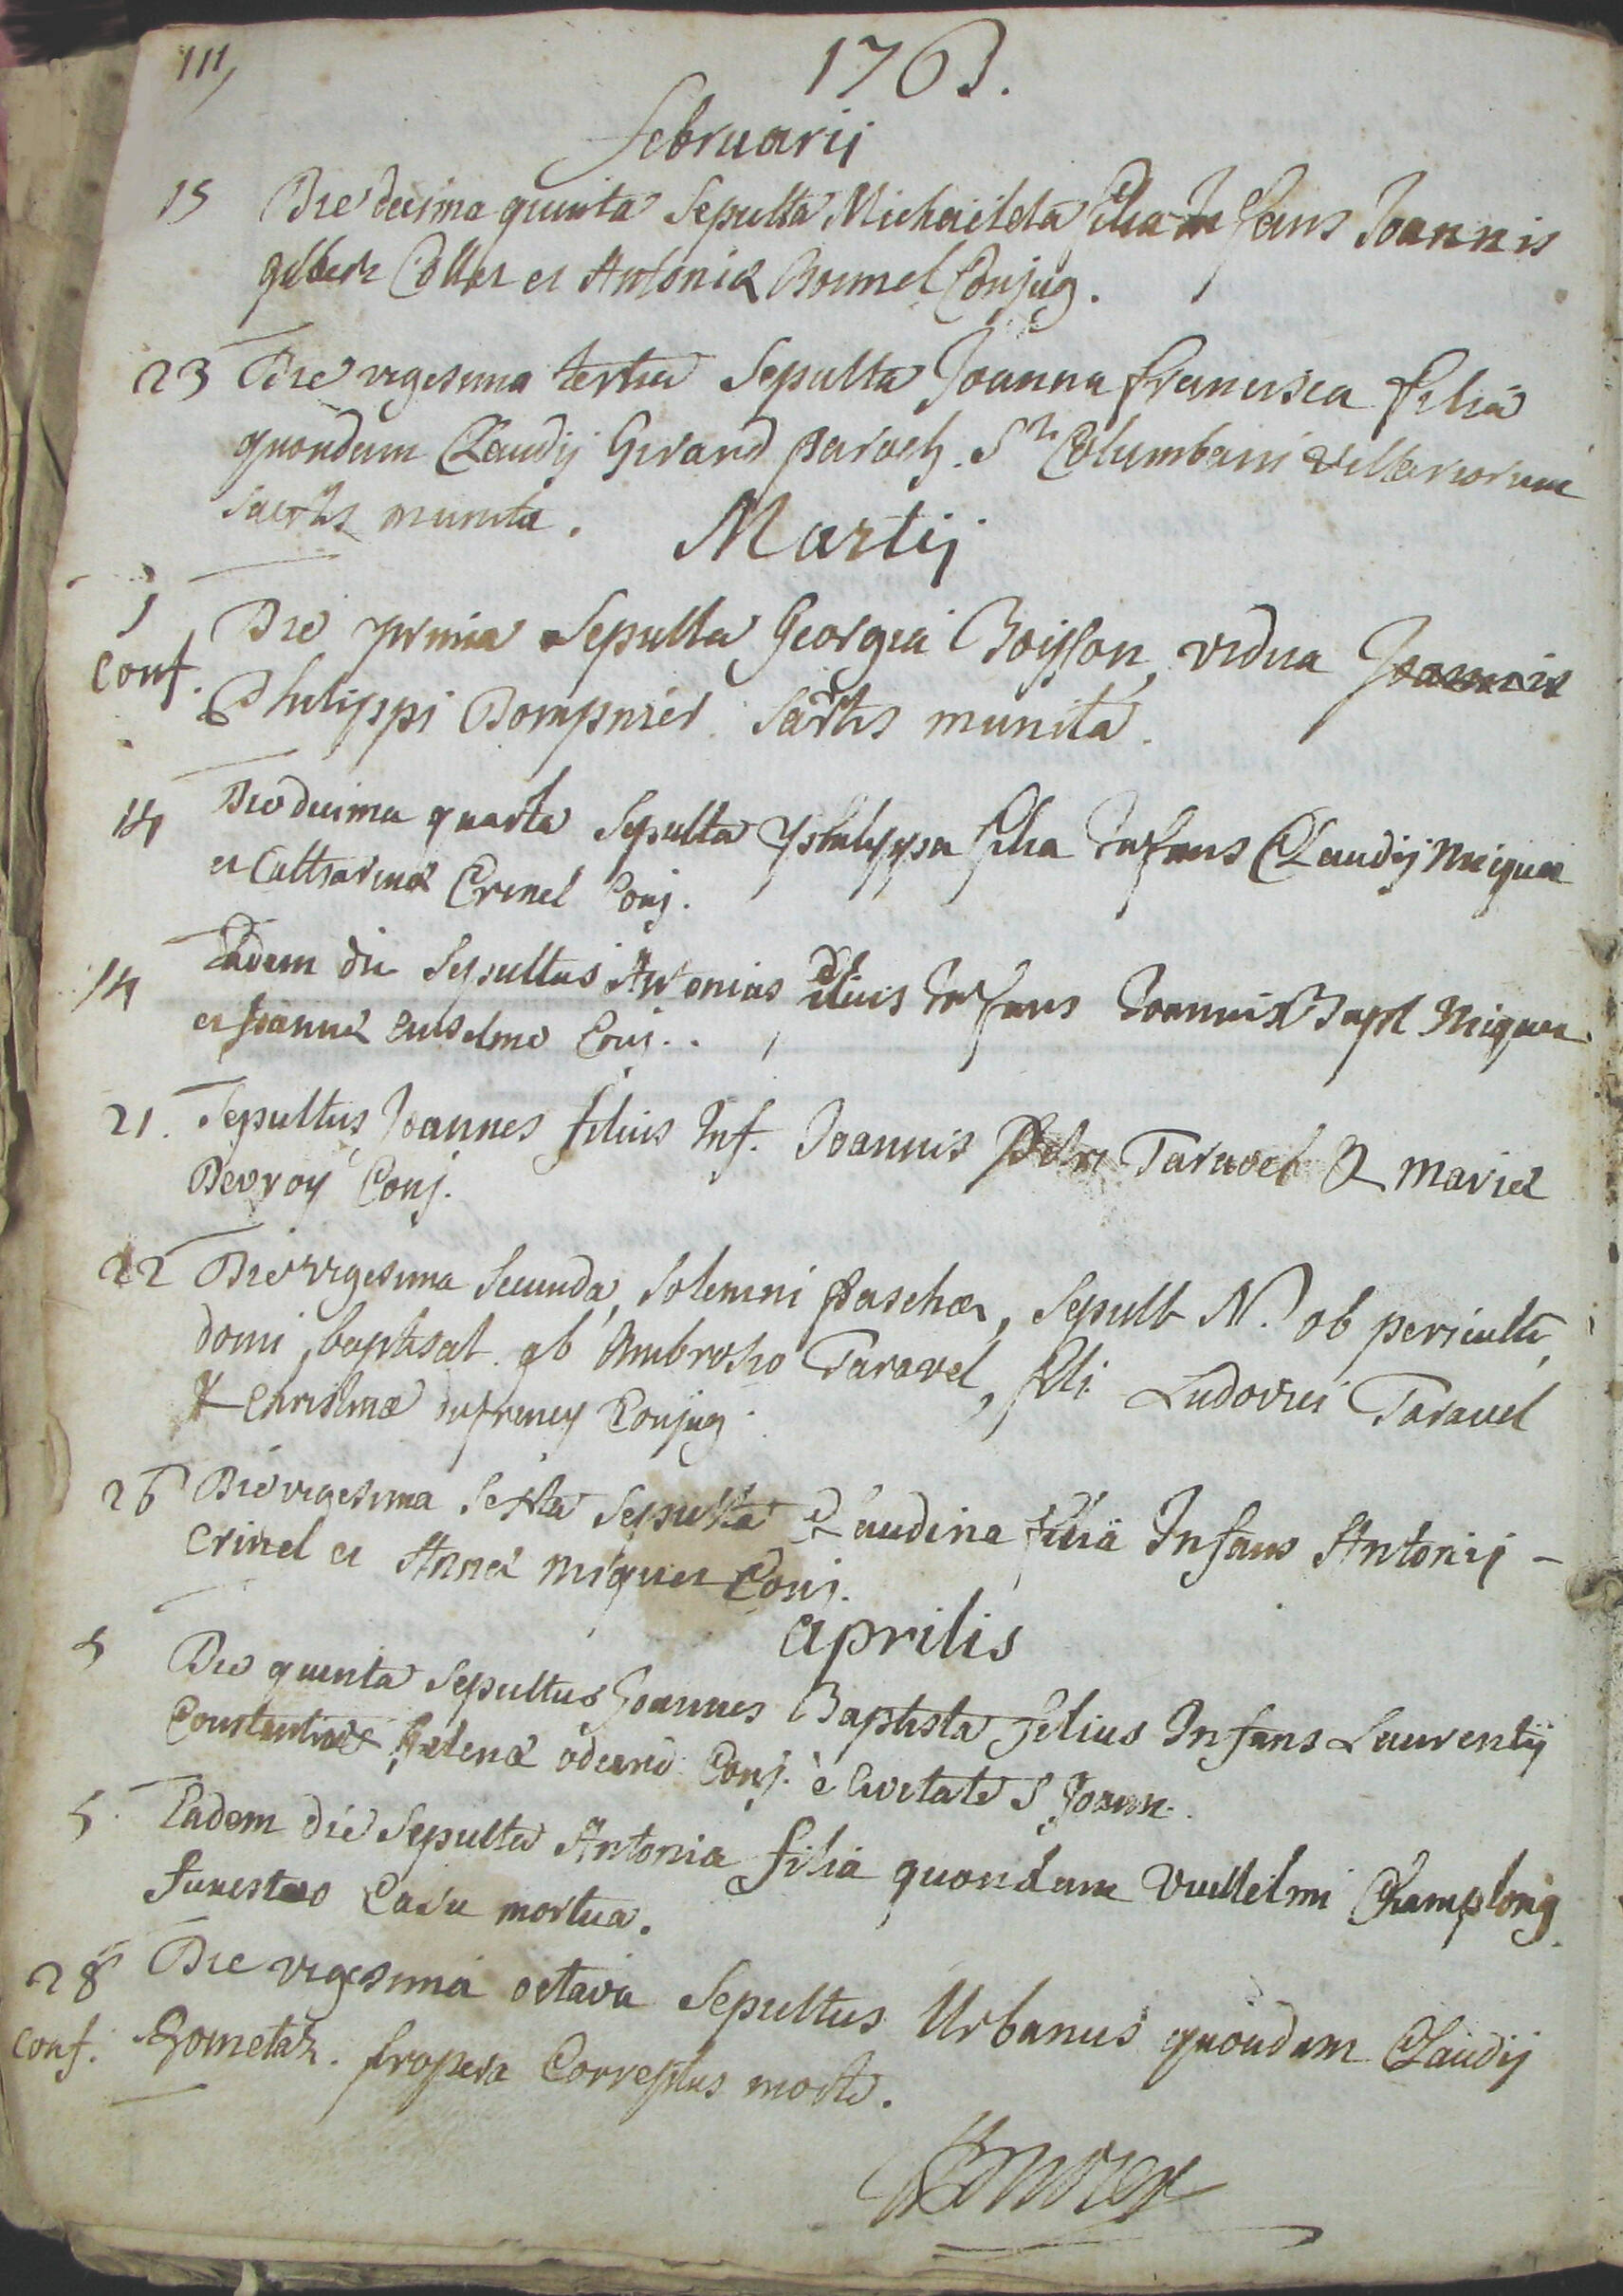 111,
1763.
februarij
15 Die decima quinta Sepulta Michaëlela filia Infans Joannis
gilbert Collet et Antoniæ Bonnel Conjug.
23 Die vigesima tertia Sepulta Joanna francisca filia
quondam Claudij Girard paroch. Sti Columbani villariorum
sacrtis munita.
Martij
1 Die prima Sepulta Georgia Boisson, vidua Joannis
Conf. Philippi Bompnier. Sartis munita.
14 Die decima quarta Sepulta philippa filia Infans Claudij Miquet
et Catharinæ Crinel Conj.
14 Eadem die Sepultus Antonius filius Infans Joannis Bapt Miquet
et Joannæ anselme Conj.
21. Sepultus Joannes filius Inf. Joannis Petri Taravel & mariæ
Devroy Conj.
22 Die vigesima Secunda, Solemni paschæ, Sepult N. ob pericult,
domi baptisat. ab Ambrosio Taravel, fili Ludovici Taravel
& Christinæ dufreney Conjug.
26 Die vigesima Sexta Sepulta Claudina filia Infans Antonij -
Crinel et Annæ miquet Conj.
aprilis
5 Die quinta Sepultus Joannes Baptista filius Infans Laurentij
Constantin & helenæ odeard Conj. è Civitate S Joann.
5. Eadem die Sepulta Antonia filia quondam Vullelmi Champlong
funesto Casu mortua.
28 Die vigesima octava Sepultus Urbanus quondam Claudij
Conf. Gometaz. propera Correptus morte.